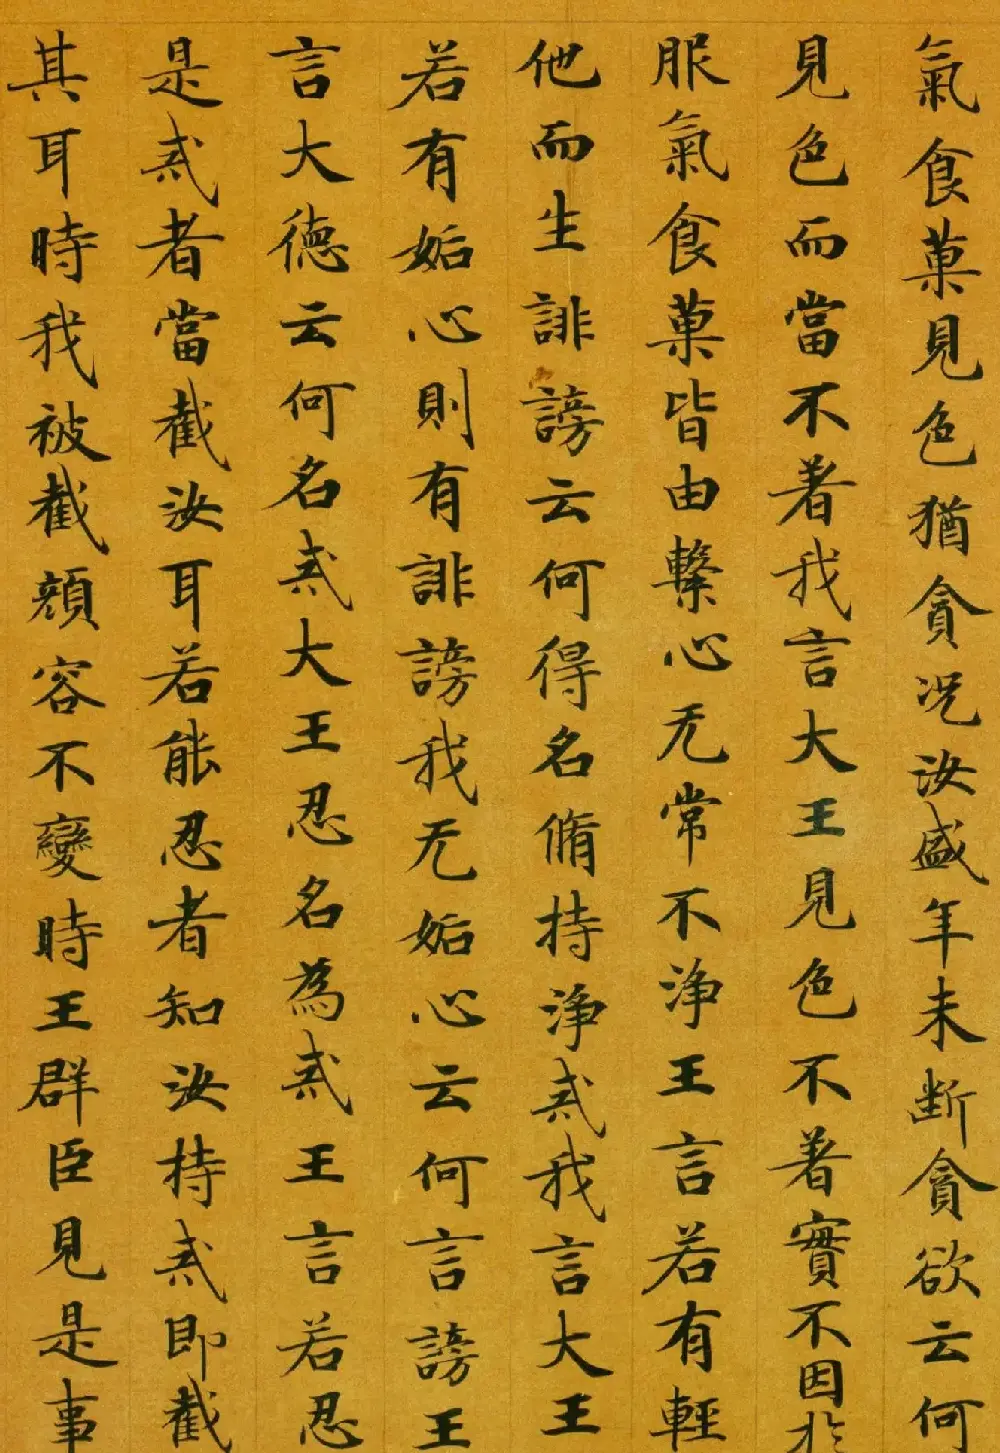 氣食菓見色猶貪況汝盛年未斷貪欲云何
見色而當不著我言大王見色不著實不因於
服氣食菓皆由繫心无常不淨王言若有輕
他而生誹謗云何得名脩持淨戒我言大王
若有妬心則有誹謗我无妬心云何言謗王
言大德云何名戒大王忍名為戒王言若忍
是戒者當截汝耳若能忍者知汝持戒即截
其耳時我被截顏容不變時王群臣見是事